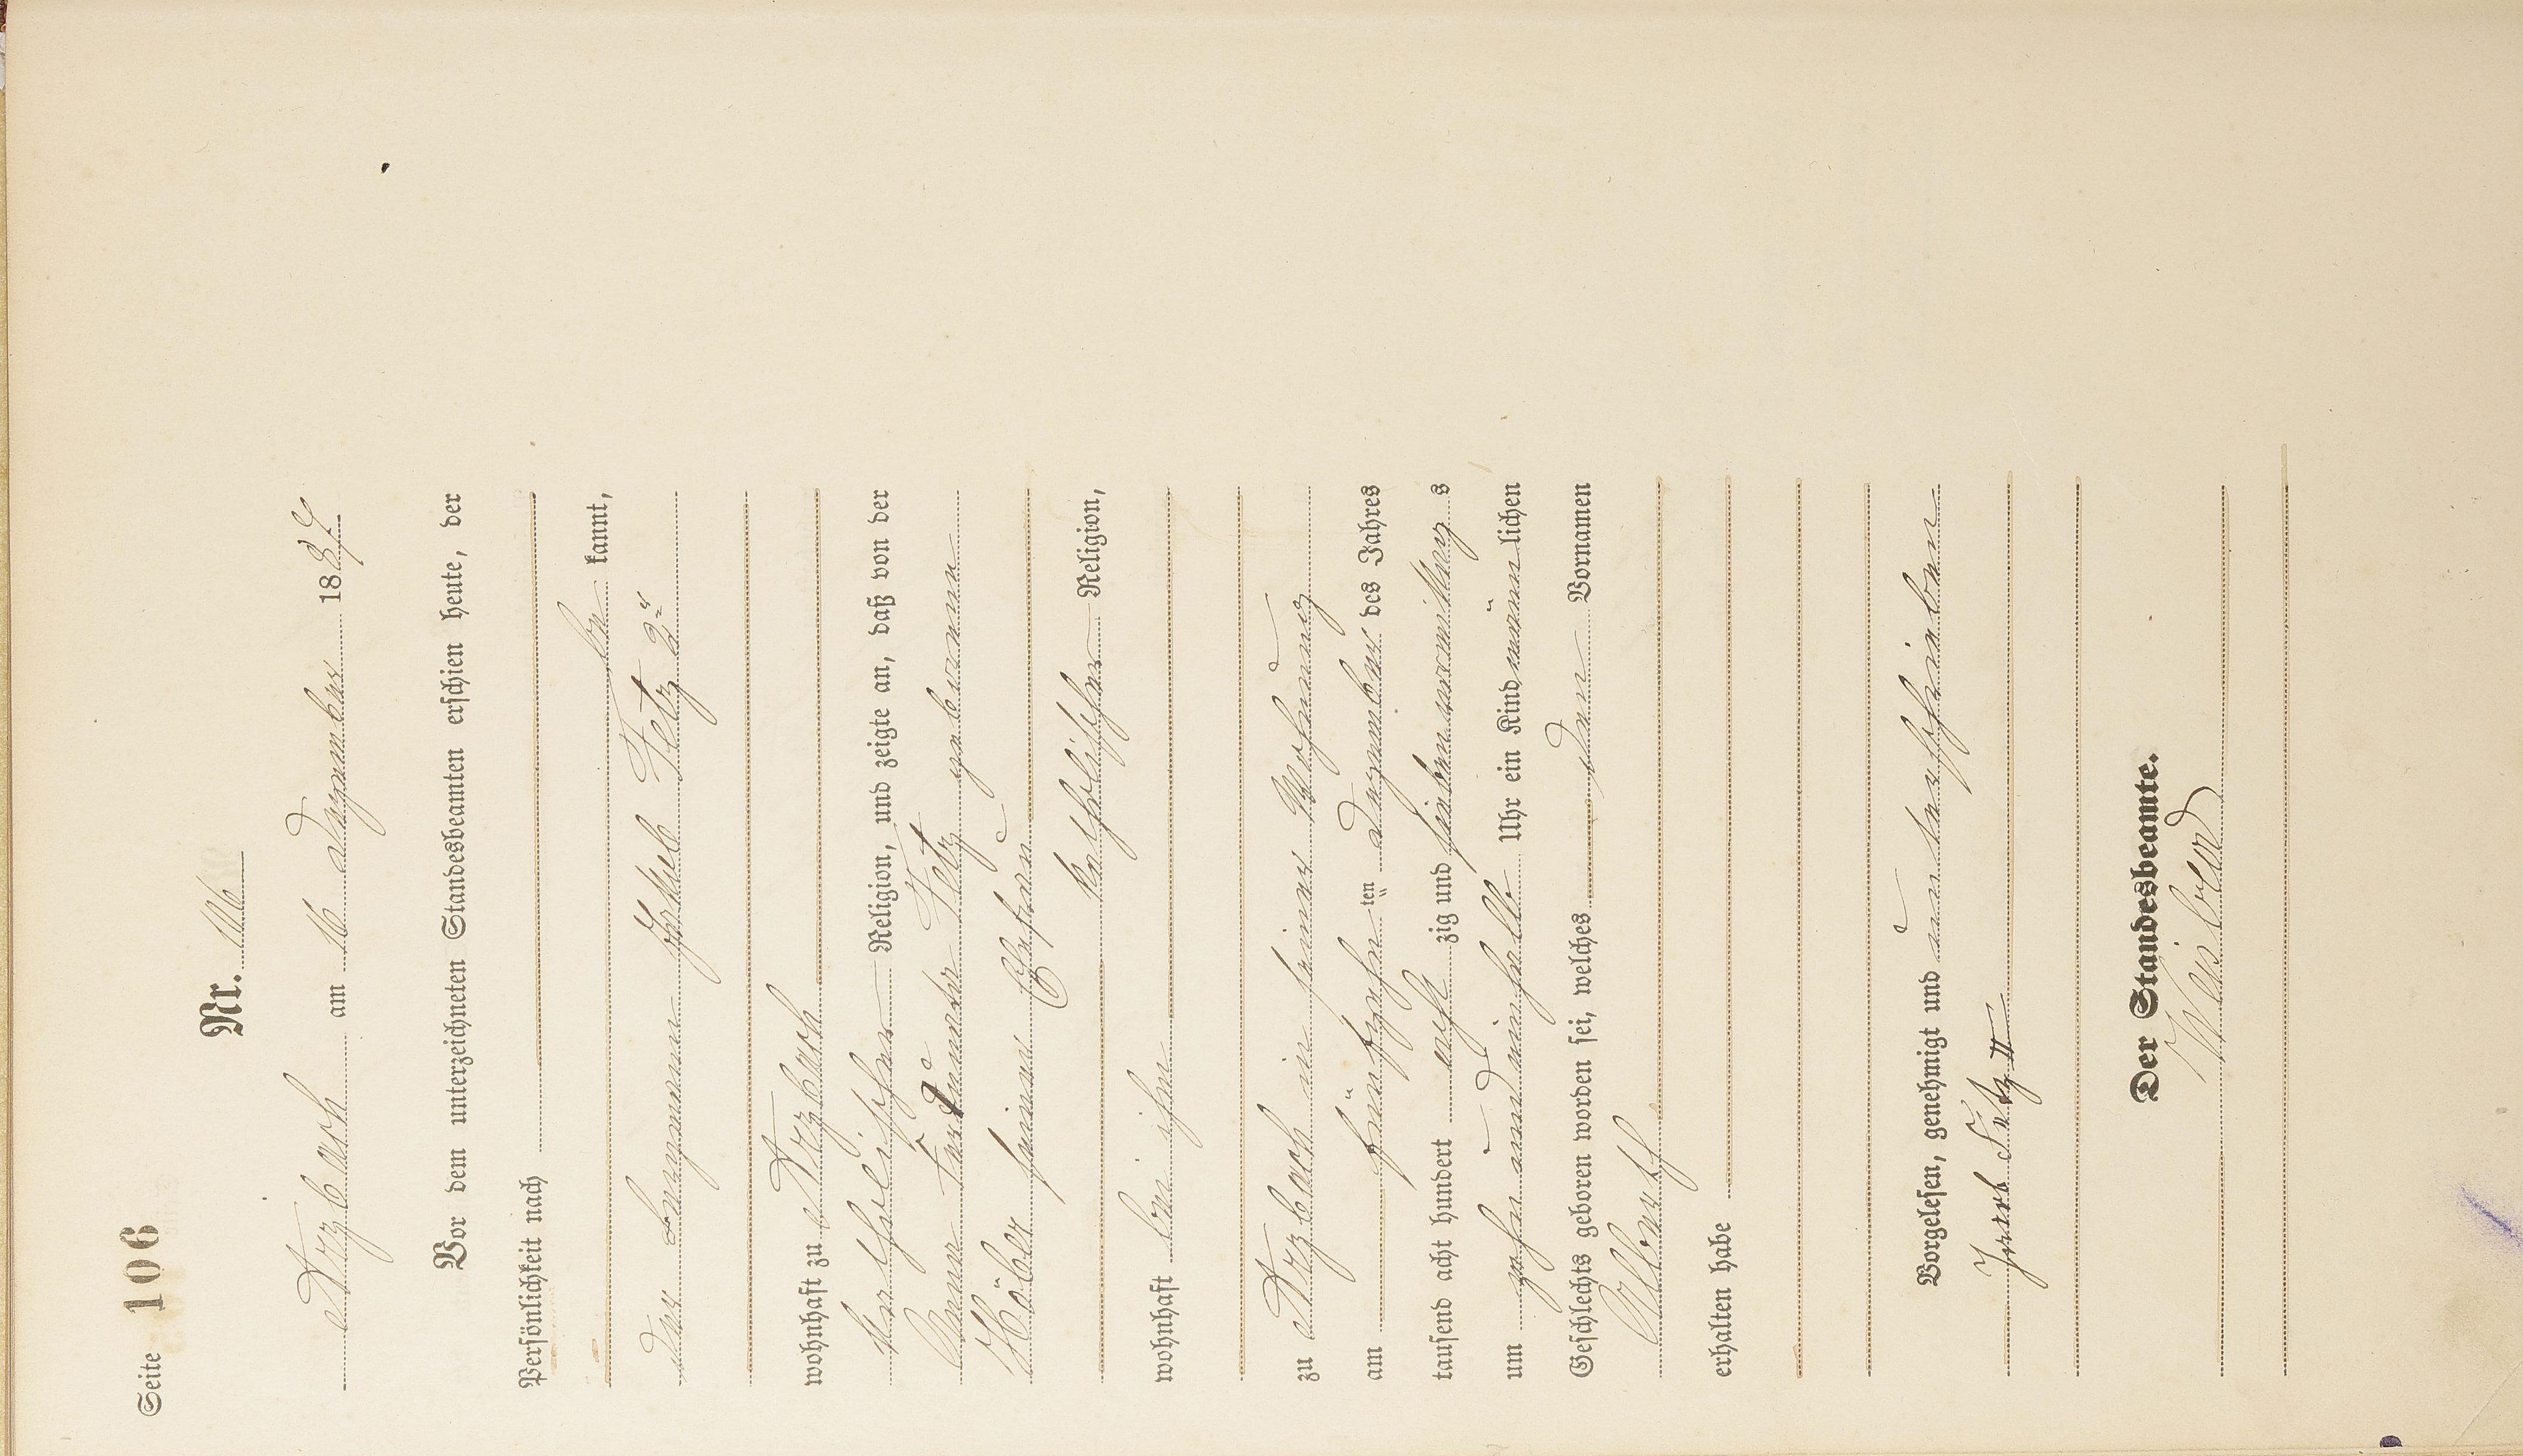 Seite 106
Nr. 106
Arzbach am 16 Dezember 1887
Vor dem unterzeichneten Standesbeamten erschien heute, der
Persönlichkeit nach
be kannt,
der Bergmann Jakob Fetz 2r
wohnhaft zu Arzbach
katholischer Religion, und zeigte an, daß von der
Anna Fetz geborenen
Höber seiner Ehefrau
katholischer Religion,
wohnhaft bei ihm
zu Arzbach in seiner Wohnung
am fünfzehn ten Dezember des Jahres
tausend acht hundert acht zig und sieben vormittags
um zehn und einhalb Uhr ein Kind männlichen
Geschlechts geboren worden sei, welches den Vornamen
Albert
erhalten habe
Vorgelesen, genehmigt und unterschrieben
Jacob Fetz II
Der Standesbeamte.